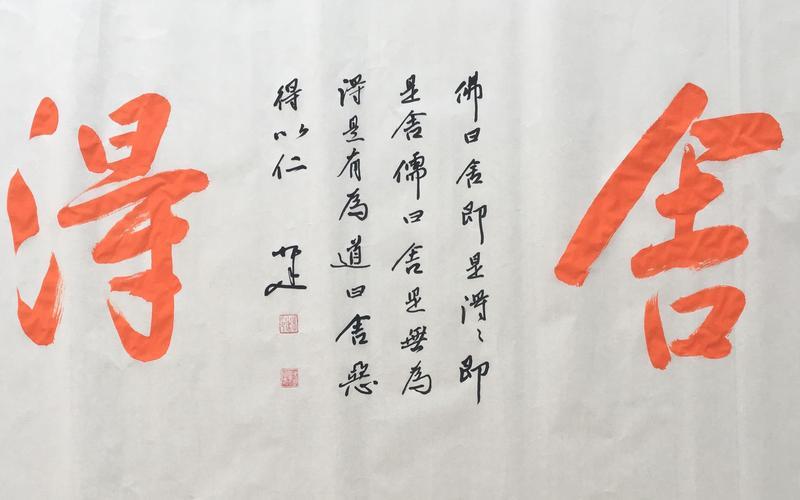 舍
佛曰舍即是得〻即
是舍儒曰舍是無為
得是有為道曰舍惡
得以仁
得